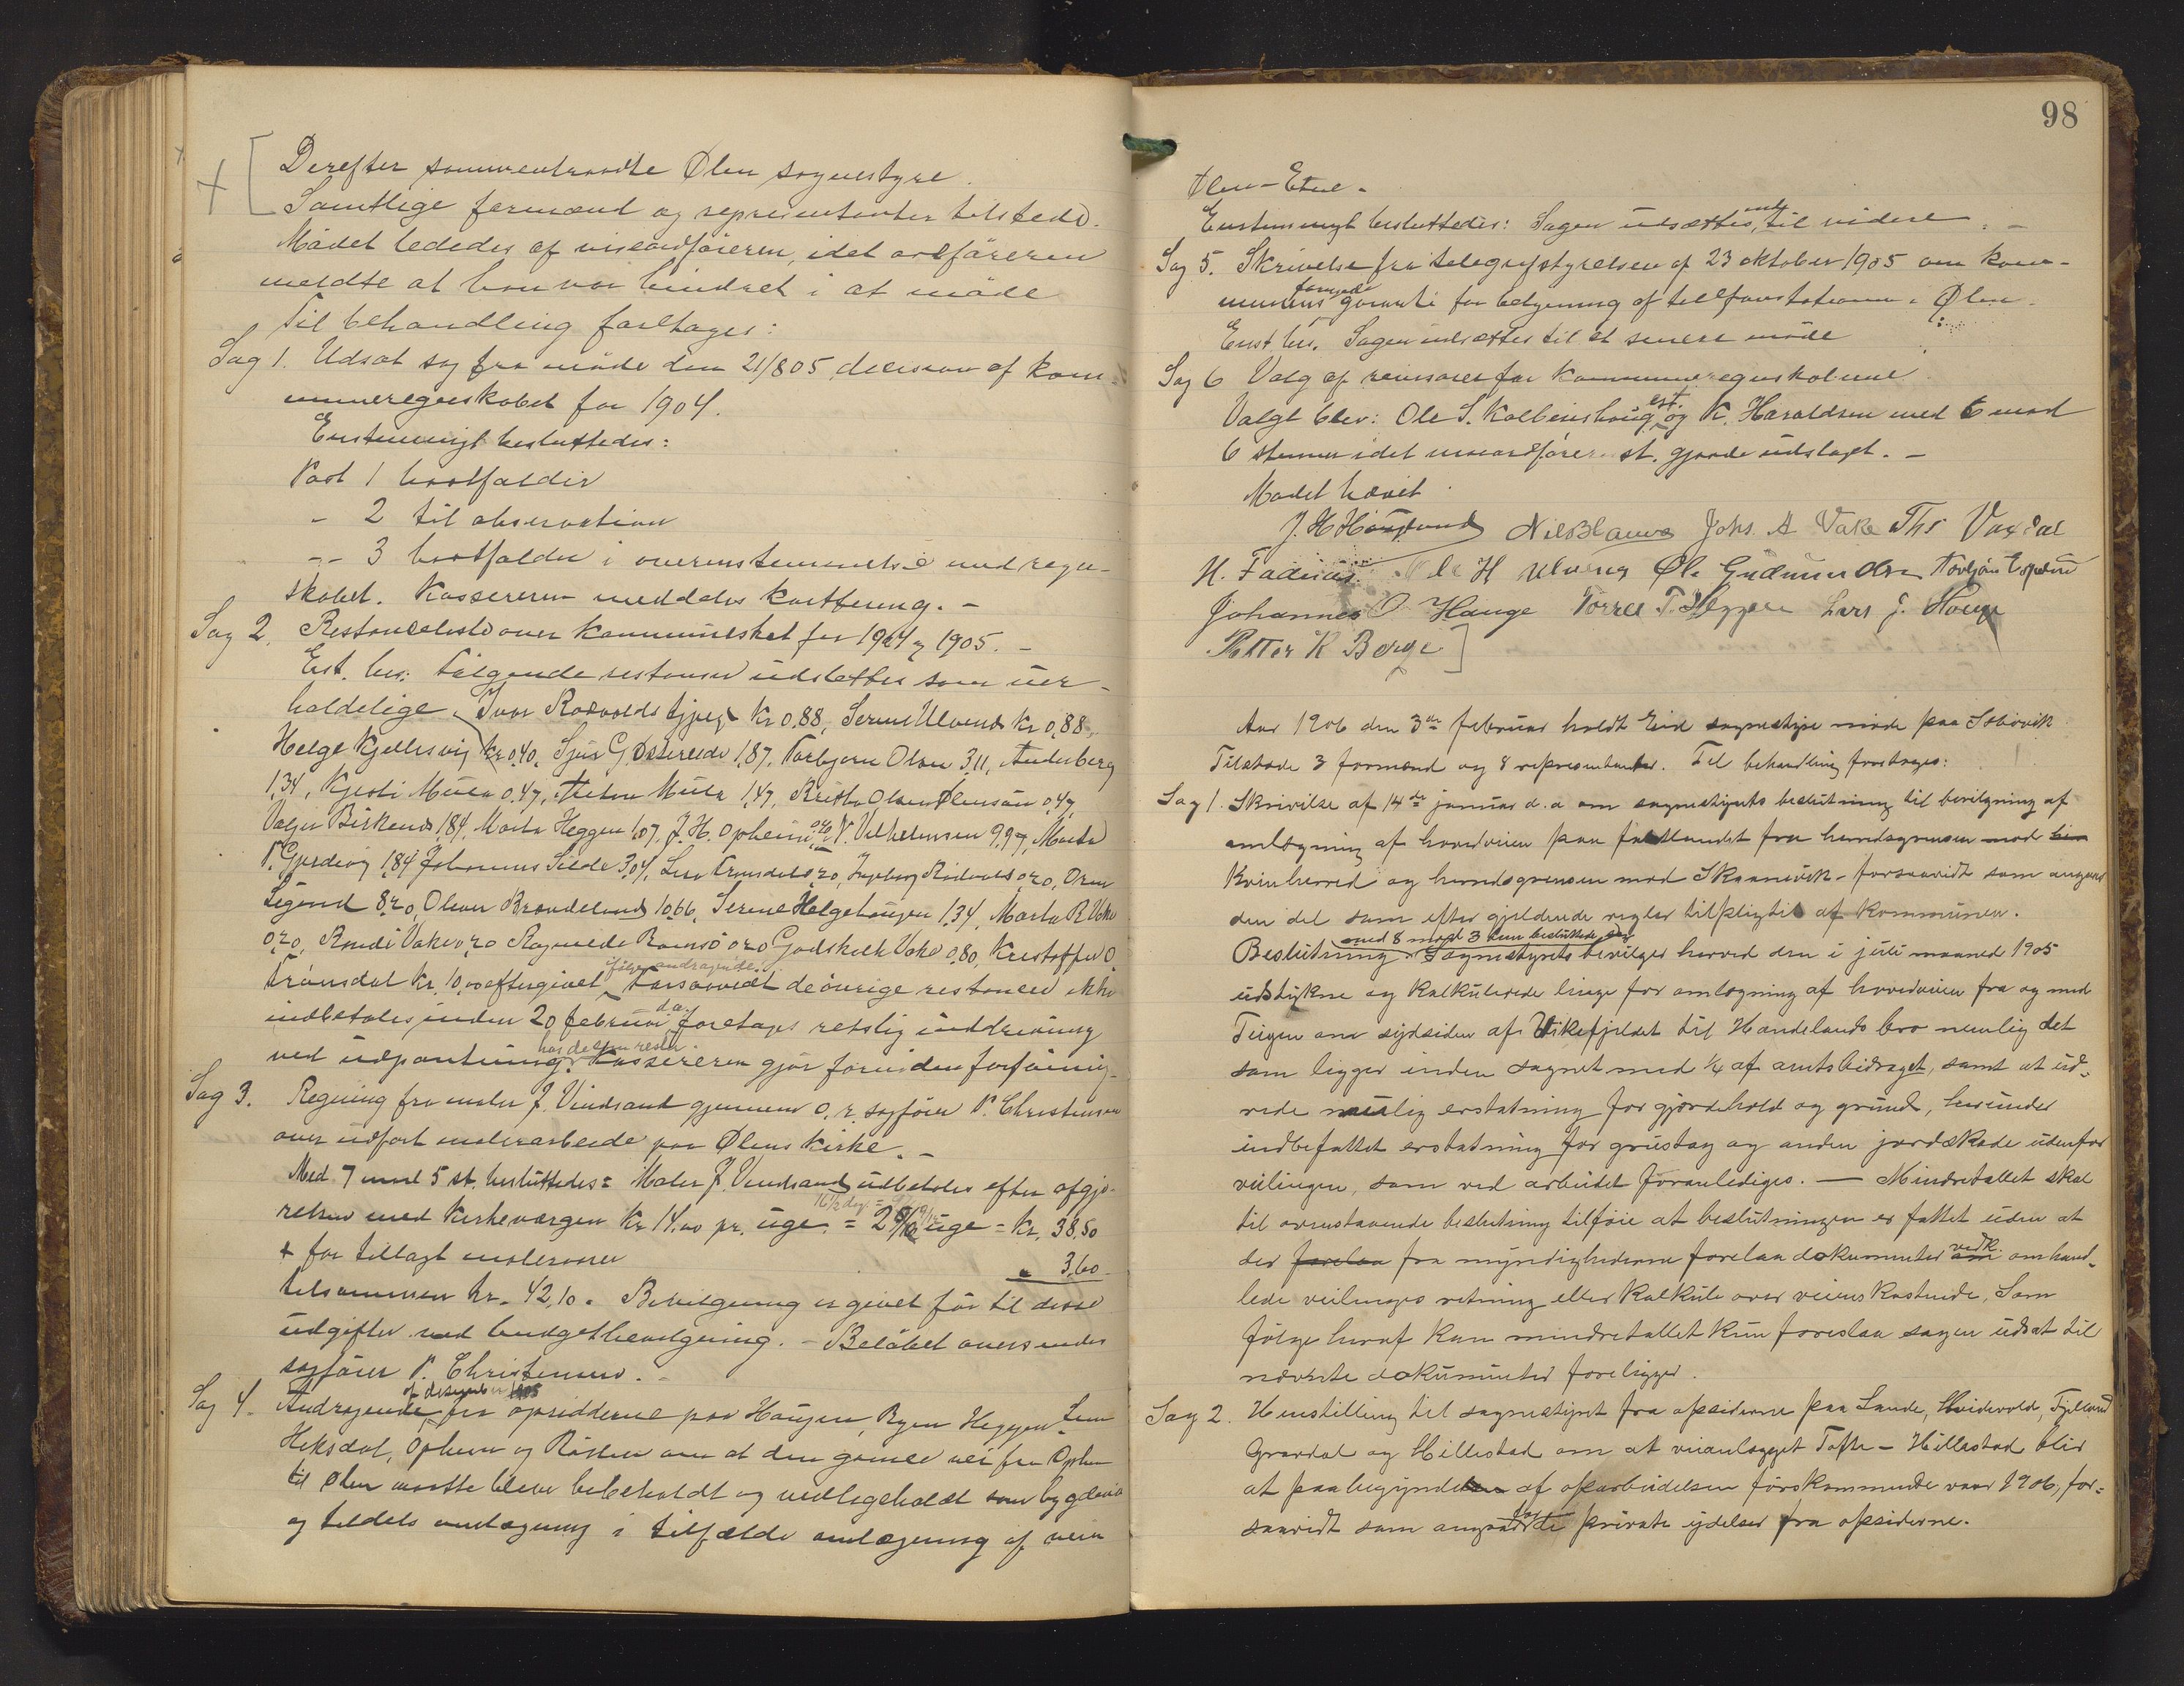 Derefter sammentraadte Ølen sognestyre.
Samtlige formænd og representanter tilstede.
Mødet lededes af viseordføreren, idet ordføreren
meldte at han var hindret i at møde
Til behandling foretages:
Sag 1. Udsat sag fra møde den 21/8 05, decision af kom-
muneregnskabet for 1904.
Enstemmigt besluttedes:
Post 1 bortfalder
- 2 til observation
-- 3 bortfalder i overensstemmelse med regn-
skabet. Kassereren meddeles kvittering. -
Sag 2. Restanceliste over kommuneskat for 1904 og 1905. -
Enst. bes. Følgende restancer udslettes som uer-
holdelige. Ivar Kr 0,88, Serine Ulvend Kr 0,88,
Helge Kjellesvig Kr 0,40, Sjur G. 1,87, Torbjørn Olsen 3,11, Anders Berg
1,34, 0,47, 1,47, Olsen 0,47,
Valgir Birkeland 1,84, Marta Heggen 1,07, J. H. Opheim 0,20, N. Vilhelmsen 9,97, Marta
P. 1,84, Johannes Silde 3,04, 0,20, Ingeborg 0,20,
8,20, Oliver Brandeland 10,66, Serine Helgehaugen 1,34, Marta R. Vake
0,20, Vake 0,20 0,20 Godskalk Vake 0,80, Kristoffer O.
Trønsdal Kr. 10,00 eftergivet ifølge andragende. Forsaavidt de øvrige restancer ikke
indbetales inden 20 februar d.a. foretages retslig inddrivning
ved udpantning hos de som rester. Kassereren gjør fornøden forføining.
Sag 3. Regning fra maler J. Vindsand gjennem o. r. sagfører P. Christensen
over udført malerarbeide paa Ølens kirke. -
Med 7 mod 5 st. besluttedes: Maler J. Vindsand udbetales efter afgjø-
relse med kirkeværgen Kr 14,00 pr. uge = 16½ dag = 2 9/12 uge = Kr. 38,50
+ for tillagt malervarer
" 3,60
tilsammen Kr. 42,10. Bevilgning er givet før til disse
udgifter ved budgetbevilgning. - Beløbet oversendes
sagfører P. Christensen. -
Sag 4. Andragende af desember 1905 fra opsidderne paa Haugen, Heggen
Opheim og om at den gamle vei fra Ophem
til Ølen maatte blive bibeholdt og vedligeholdt som bygdevei
og tildels omlægning i tilfælde omlægning af veien
98
Ølen - Etne.
Enstemmigt besluttedes: Sagen udsættes indtil videre. -
Sag 5. Skrivelse fra telegrafstyrelsen af 23 oktober 1905 om kom-
munens fornyede garanti for betjening af telefonstationen i Ølen.
Enst. bes. Sagen udsættes til et senere møde
Sag 6 Valg af revisorer for kommuneregnskaberne
Valgt blev: Ole S. Kolbeinshaug enst. og K. Haraldsen med 6 mod
6 stemmer idet viseordførerens st. gjorde udslaget. -
Mødet hævet.
J. H. Haugland Nils Blauve Johs. A Vake Ths Vaxdal
H. Fadnæs Ole H Ulveng Ole Gudmundsen Torbjørn Espeland
Johannes O. Hauge Torres T. Heggen Lars J. Hauge
Petter K Berge
Aar 1906 den 3de februar holdt Eid sognestyre møde paa Søbøvik
Tilstede 3 formænd og 8 representanter. Til behandling foretages:
Sag 1. Skrivelse af 14de januar d.a. om sognestyrets beslutning til bevilgning af
omlægning af hovedveien paa fastlandet fra herredsgrænsen mod
Kvinherred og herredsgrænsen mod Skaanevik - forsaavidt som angaar
den del som efter gjeldende regler tilpligtes af kommunen.
Beslutning: med 8 mod 3 stemmer besluttedes: Sognestyret bevilger herved den i juli maaned 1905
udstukne og kalkulerede linje for omlægning af hovedveien fra og med
Teigen om sydsiden af Vikefjeldet til Handelands bro nemlig det
som ligger inden sognet med ¼ af amtsbidraget, samt at ud-
rede mulig erstatning for gjærdehold og grund, herunder
indbefattet erstatning for grustag og anden jordskade udenfor
veilinjen, som ved arbeidet foranlediges. — Mindretallet skal
til ovenstaaende beslutning tilføie at beslutningen er fattet uden at
der forelaa fra myndighederne forelaa dokumenter vedk. omhand-
lede veilinjes retning eller kalkule over veiens kostende. Som
følge heraf kan mindretallet kun foreslaa sagen udsat til
nævnte dokumenter foreligger.
Sag 2. Henstilling til sognestyret fra opsiderne paa Lande, Hvidevold, Fjelland
Grøvdal og Hillestad om at veianlægget Tofte - Hillestad blir
at paabegynde af oparbeidelsen førstkommende vaar 1906, for-
saavidt som angaar de private ydelser fra opsiderne.